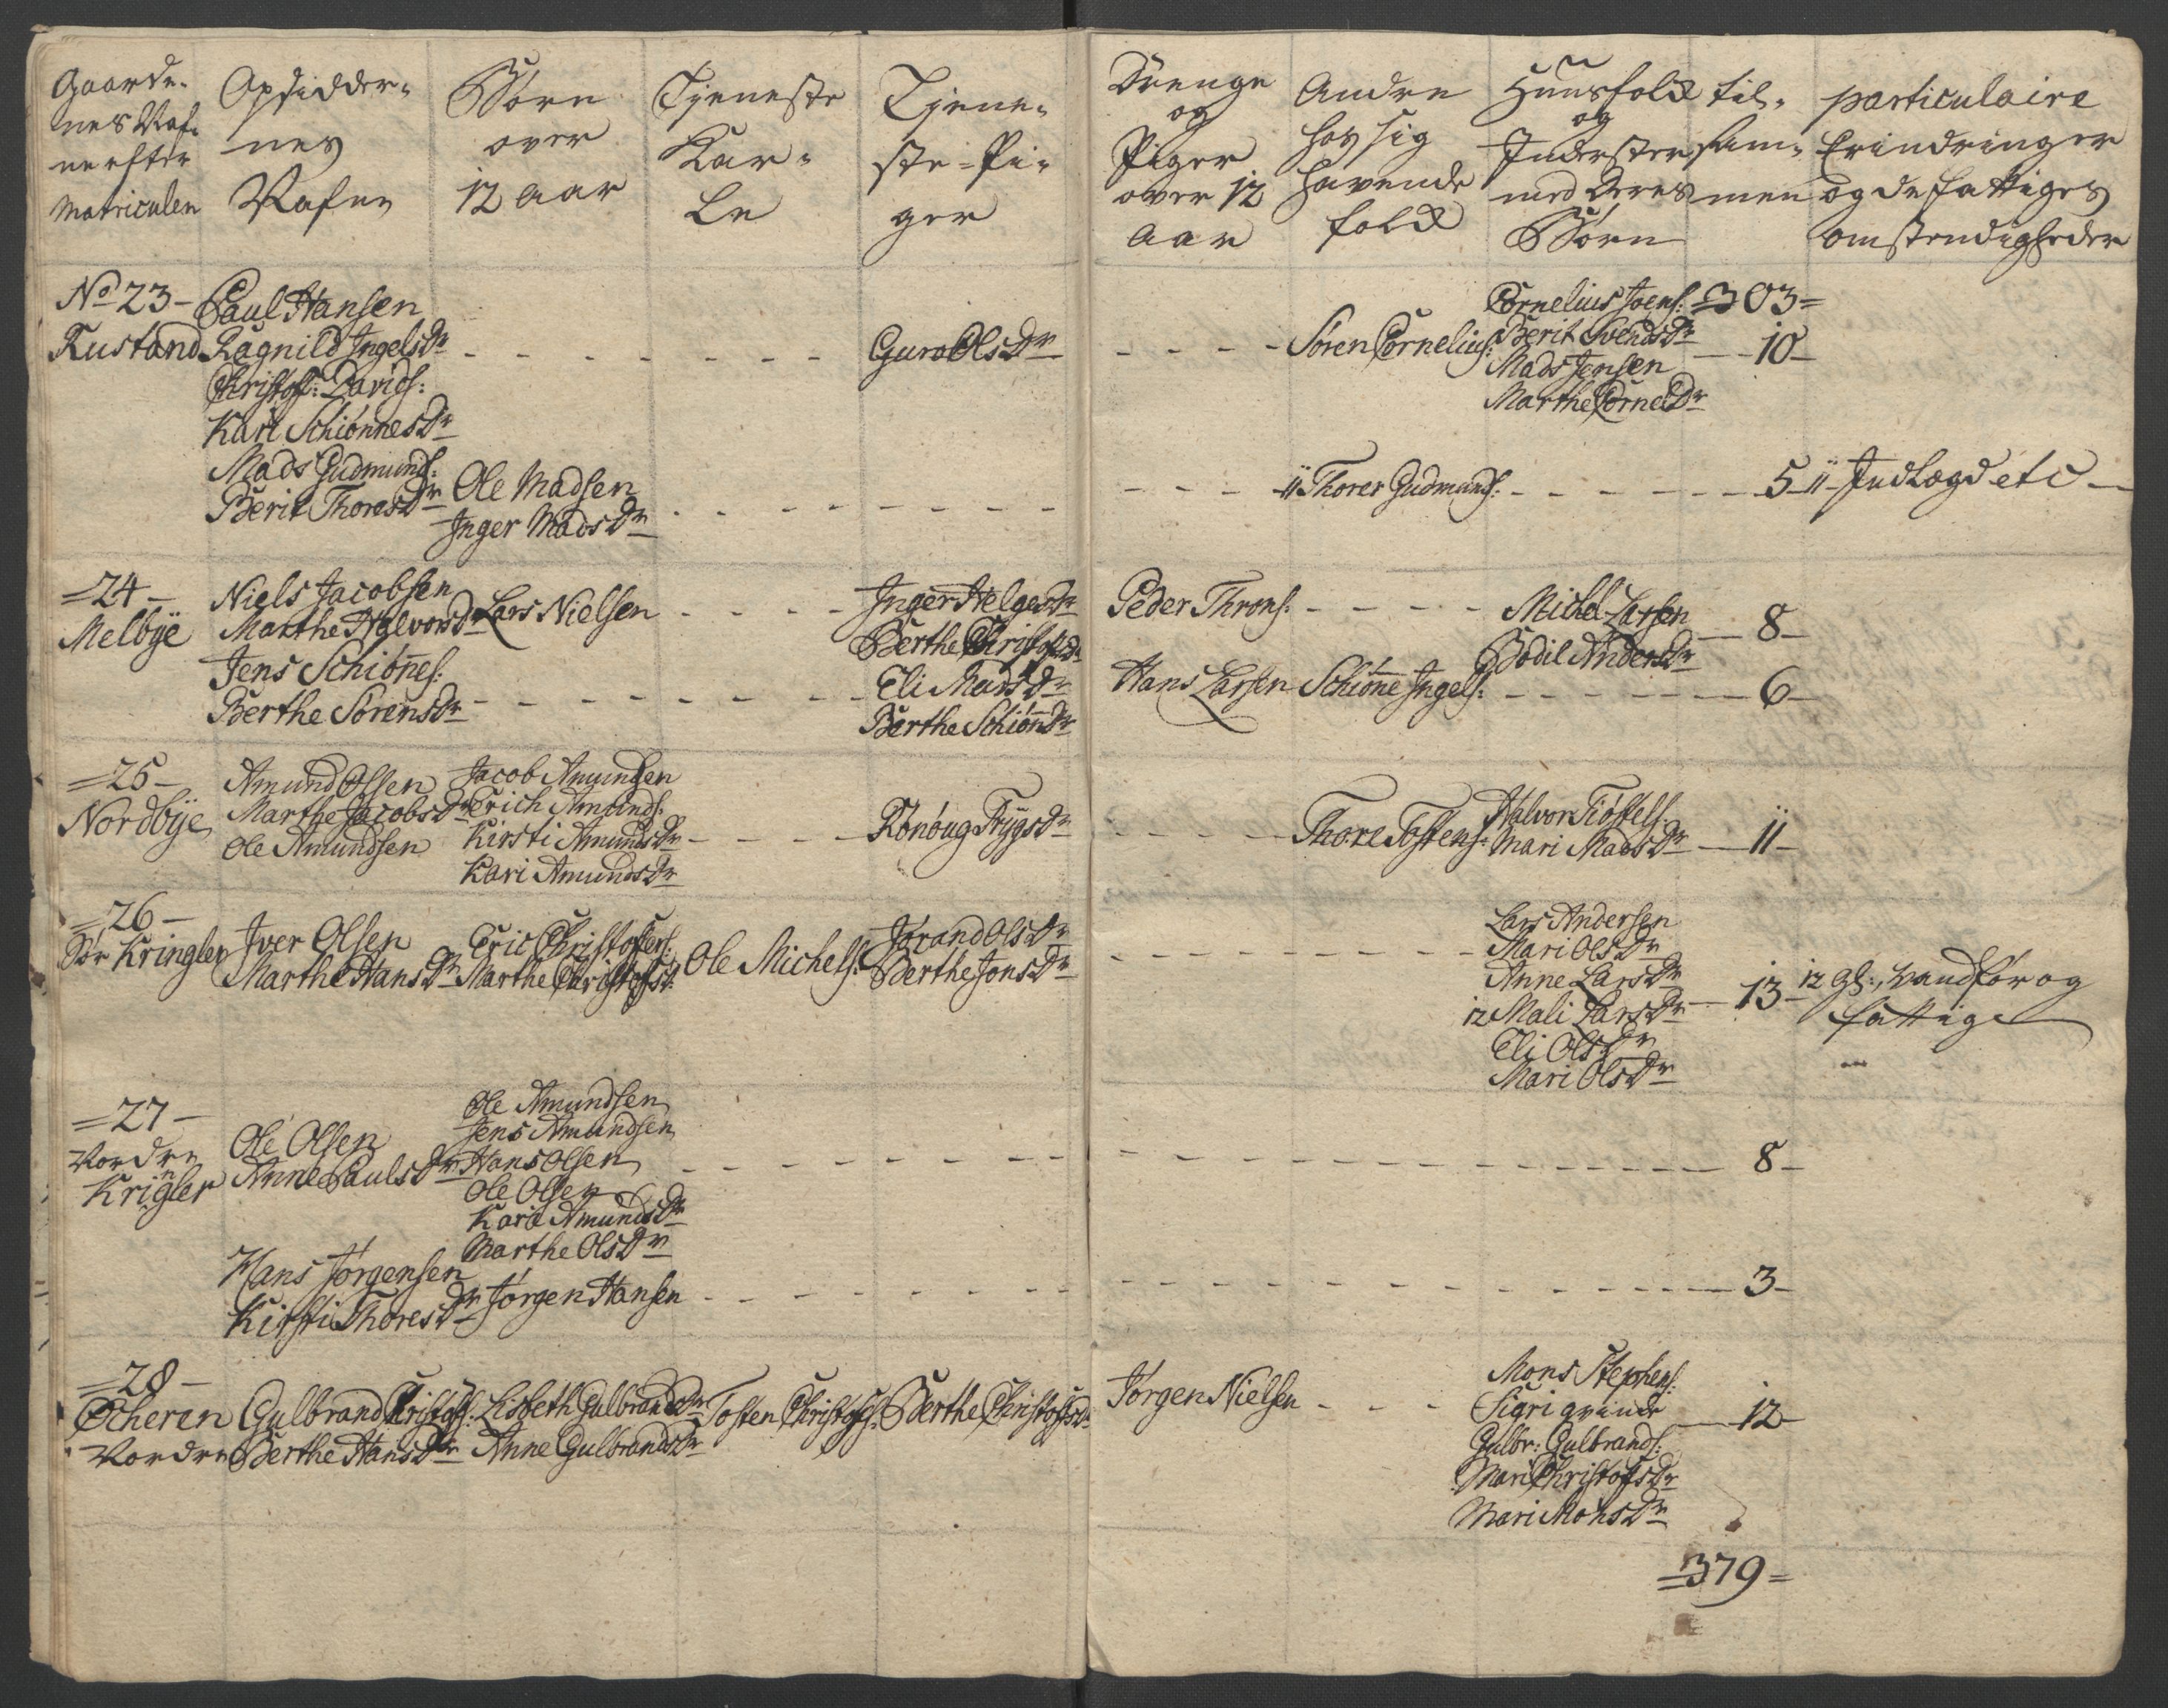 Gaarde-
nes Naf-
ne efter
Matriculen
Opsidder-
nes
Nafne
Børn
over
12 aar
Tjeneste
Kar-
le
Tjene-
ste-Pi-
ger
Drenge
og
Piger
over 12
aar
Andre
hos sig
havende
folck
Huusfolck
og
Inderster
med Deres
Børn
til-
sam-
men
particulaire
Erindringer
og de fattiges
omstendigheder
No 23-
Rustand
Paul Hansen
Ragnild IngelsDr
Christoff: Davids:
Kari SchiönnesDr
Guro OlsDr
Sören Cornelius:
Cornelius Joens:
Berit SvendsDr
Mads Jensen
Marthe CornelDr
=303=
10-
Mads Gudmunds:
Berit ThoresDr
Ole Madsen
Inger MadsDr
11 Thorer Gudmunds:
5-
11- Indlagd etc
=24-
Melbÿe
Niels Jacobsen
Marthe HalvorsDr
Lars Nielsen
Inger HelgesDr
Berthe ChristofsDr
Peder Throns:
Michel Larsen
Bodil AndersDr
8-
Jens Schiönnes:
Berthe SörensDr
Eli MadsDr
Berthe SchiönnDr
Hans Larsen
Schiönne Ingels:
6-
=25-
Nordbÿe
Amund Olsen
Marthe JacobsDr
Ole Amundsen
Jacob Amundsen
Erich Amunds:
Kirsti AmundsDr
Kari AmundsDr
Rönoug TrÿgsDr
Thore Tostens:
Halvor Kiöstels:
Mari MadsDr
11-
=26-
Sör Kringler
Iver Olsen
Marthe HansDr
Eric Christofers:
Marthe ChristofsD:
Ole Michels:
Jörand OlsDr
Berthe JonsDr
Lars Andersen
Mari OlsDr
Anne LarsDr
12 Mali LarsDr
Eli OlsDr
Mari OlsDr
13-
12 gl:, vandför og
fattig
=27-
Vordre
Krigler
n
Ole Olsen
Anne PaulsDr
Ole Amundsen
Jens Amundsen
Hans Olsen
Ole Olsen
Kari AmundsDr
Marthe OlsDr
8-
Hans Jörgensen
Kirsti ThoresDr
Jörgen Hansen
3-
=28-
Ocheren
Vordre
Gulbrand Christoff:
Berthe HansDr
Lisbeth GulbrandsDr
Anne GulbrandsDr
Tosten Christofs:
Berthe ChristofersD:
Jörgen Nielsen
Mons Stephens:
Sigri qvinde
Gulbr: Gulbrands:
Mari ChristofsDr
Mari MonsDr
12-
=379=